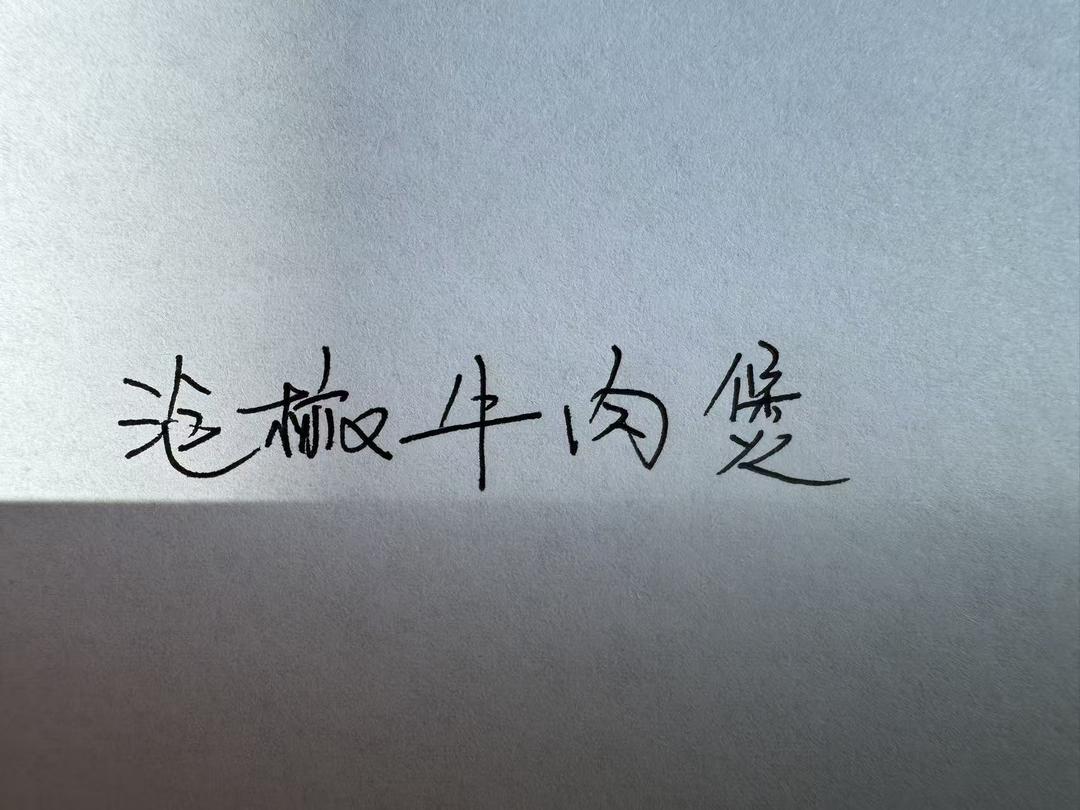 泡椒牛肉煲